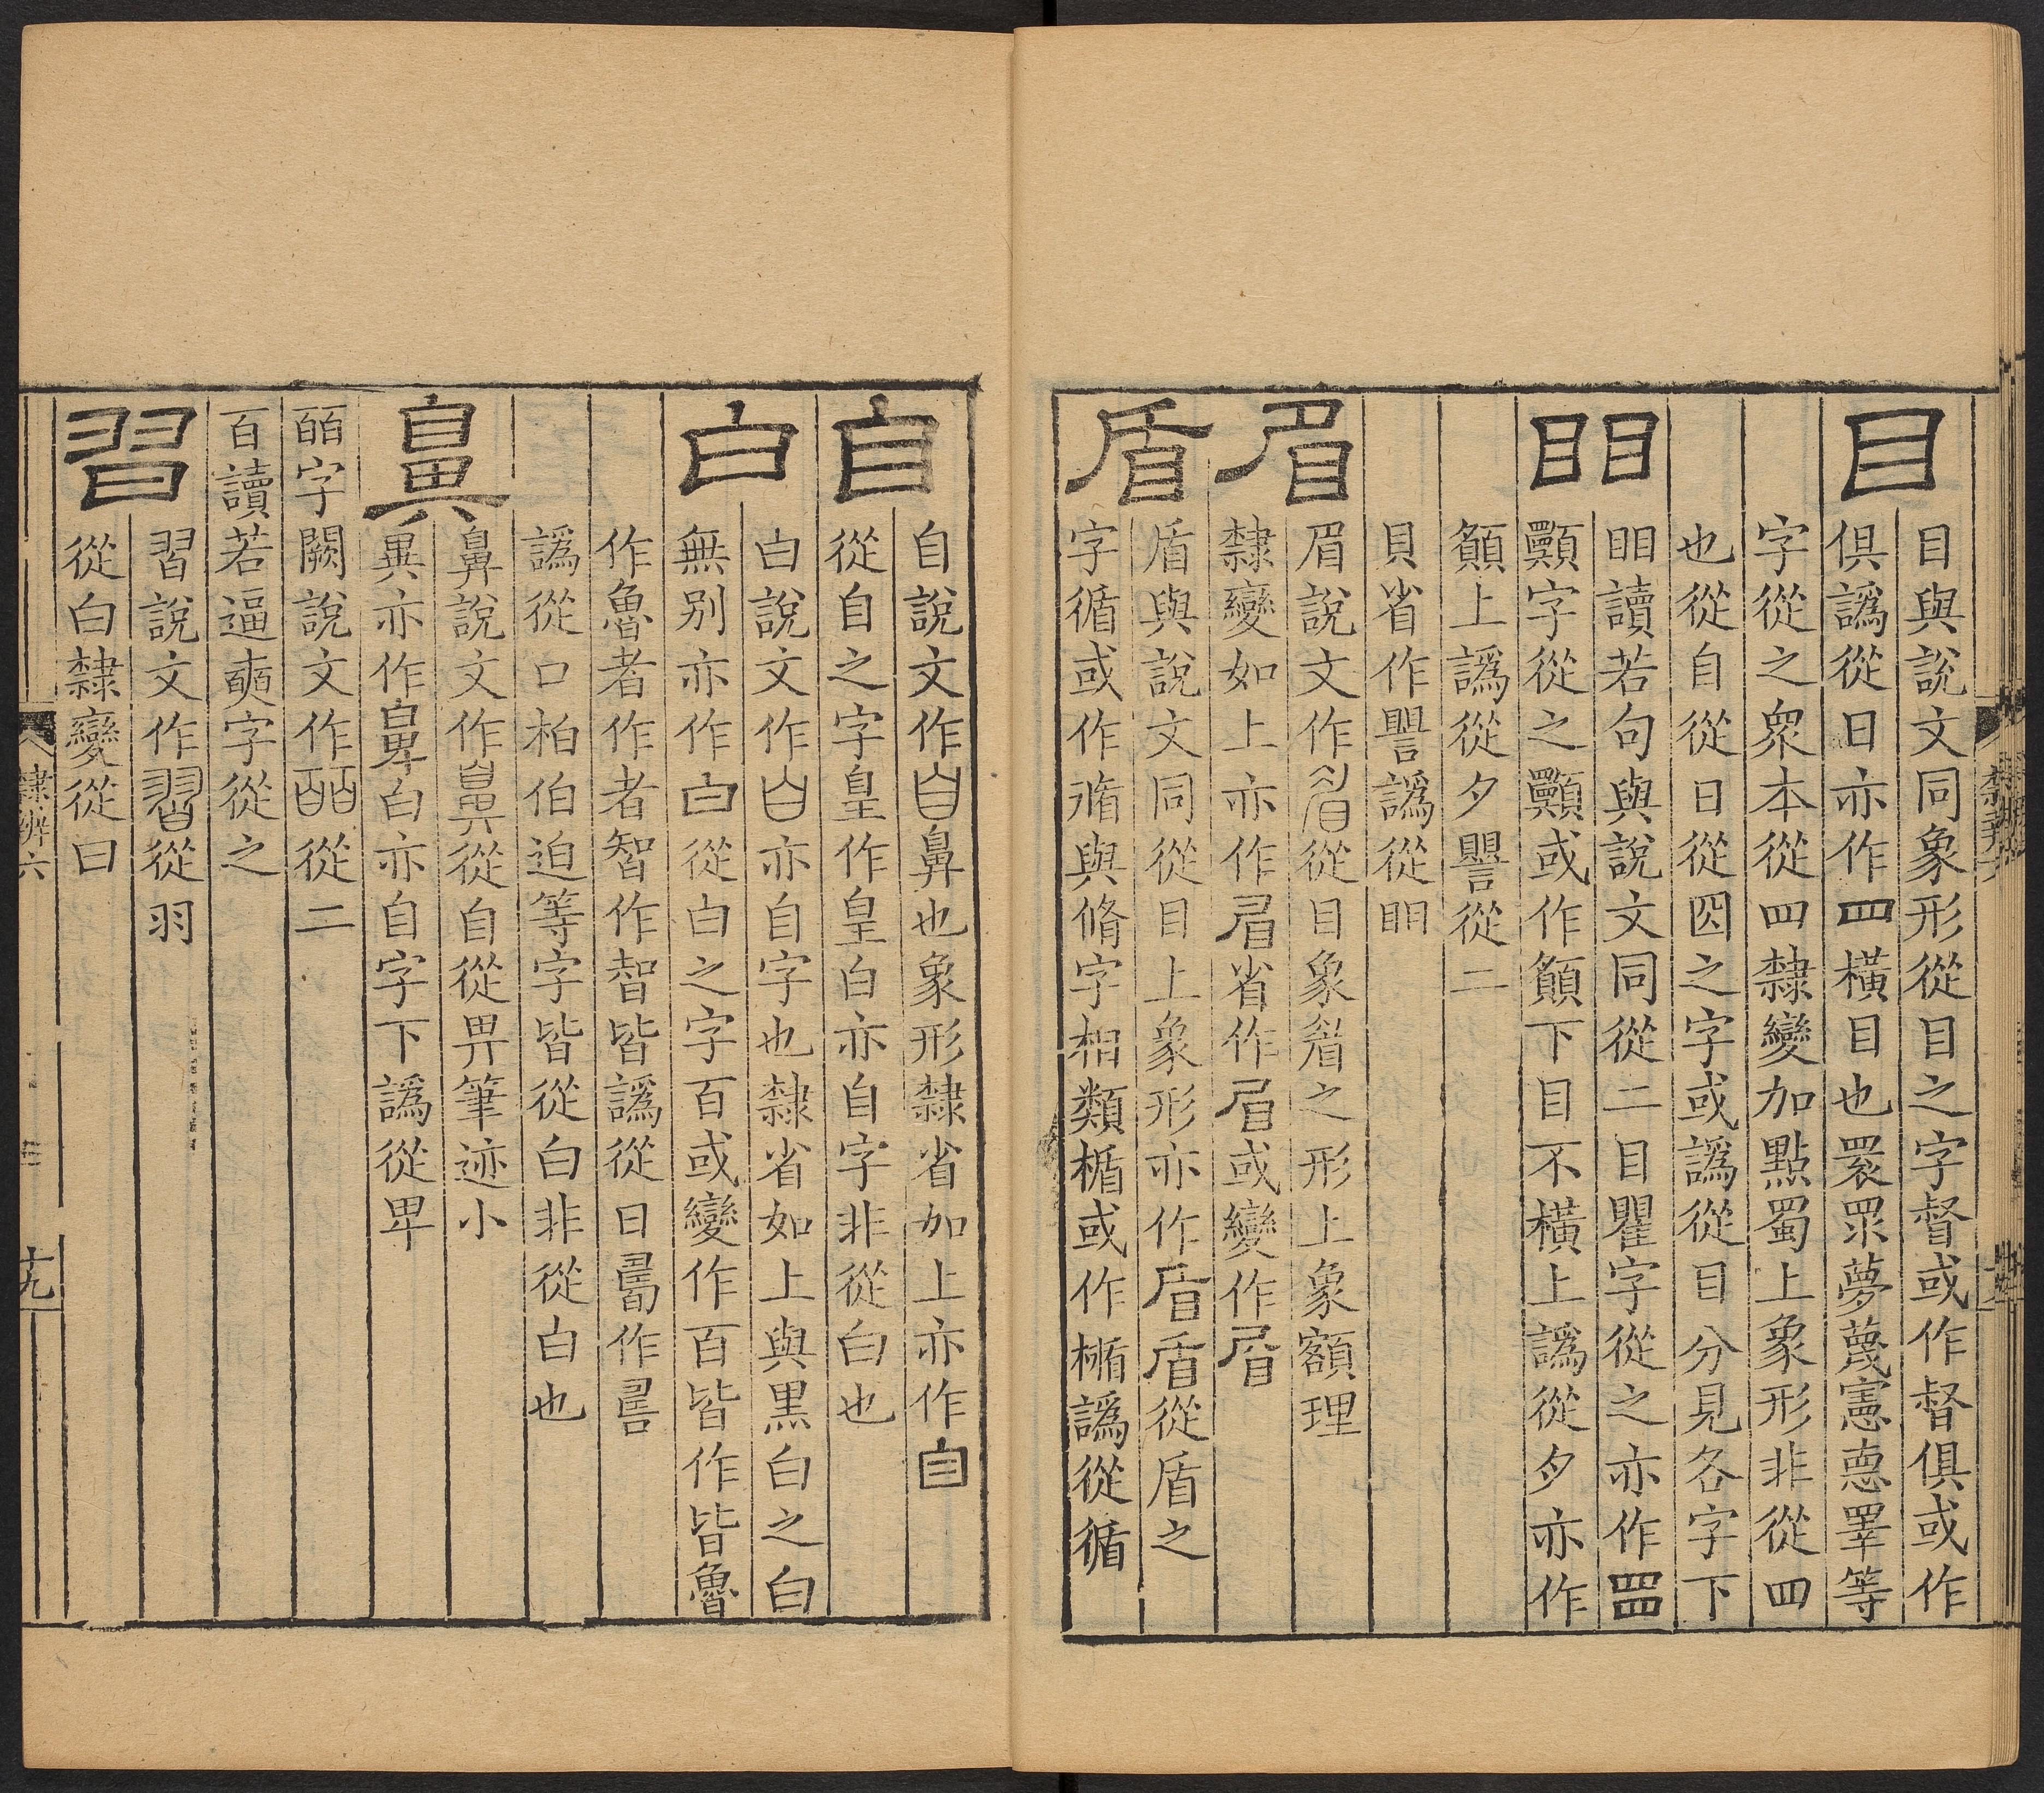 目
目與說文同象形從目之字督或作督俱或作
俱譌從日亦作罒橫目也睘眾夢蔑憲悳睪等
字從之衆本從罒隸變加點蜀上象形非從罒
也從自從日從囟之字或譌從目分見各字下
䀠
䀠讀若句與說文同從二目瞿字從之亦作
顯字從之顯或作下目不橫上譌從夕亦作
上譌從夕從二
貝省作譌從䀠
眉
眉說文作從目象眉之形上象額理
隸變如上亦作省作或變作
盾
盾與說文同從目上象形亦作盾從盾之
字循或作與脩字相類楯或作譌從循
自
自說文作鼻也象形隸省加上亦作
從自之字皇作皇白亦自字非從白也
白
白說文作亦自字也隸省如上與黑白之白
無別亦作從白之字百或變作百皆作皆魯
作魯者作者智作智皆譌從日作
譌從口柏伯迫等字皆從白非從白也
鼻
鼻說文作從自從畀筆迹小
異亦作白亦自字下譌從卑
皕字闕說文作從二
百讀若逼奭字從之
習
習說文作從羽
從白隸變從曰
隸辨六
十九